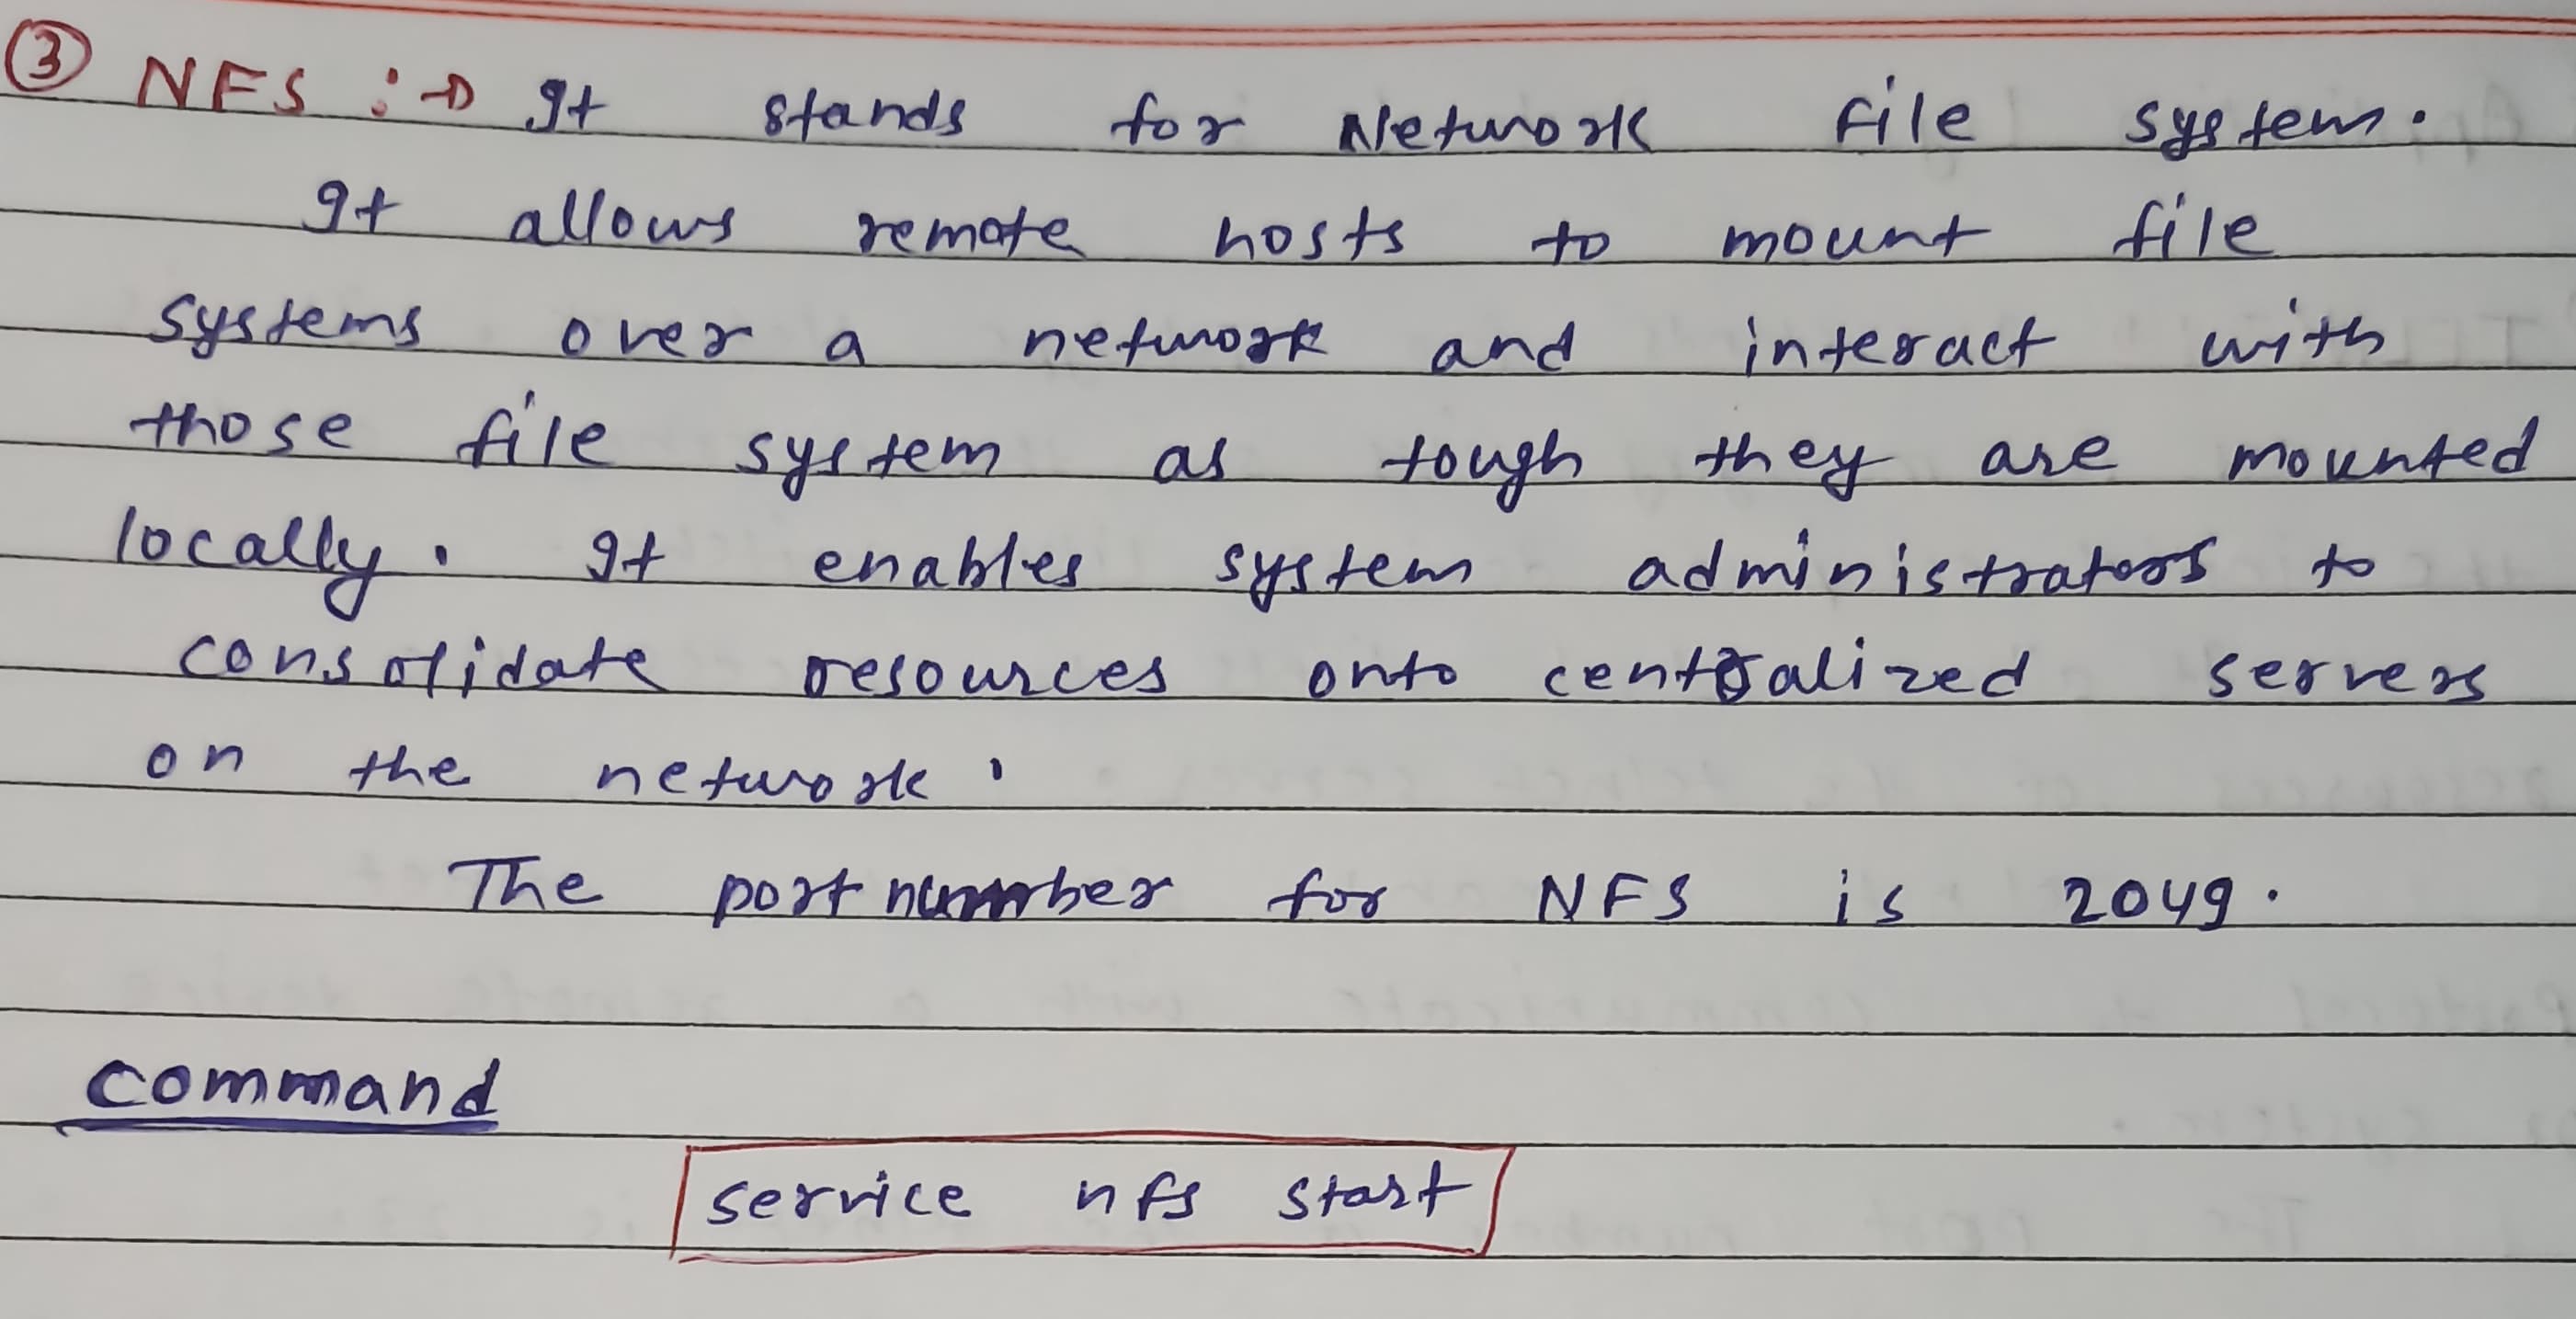 ③ NFS :→ It stands for Network File system.
It allows remote hosts to mount file
systems over a network and interact with
those file system as tough they are mounted
locally. It enables system administrators to
consolidate resources onto centralized servers
on the network.
The port number for NFS is 2049.
command
service nfs start